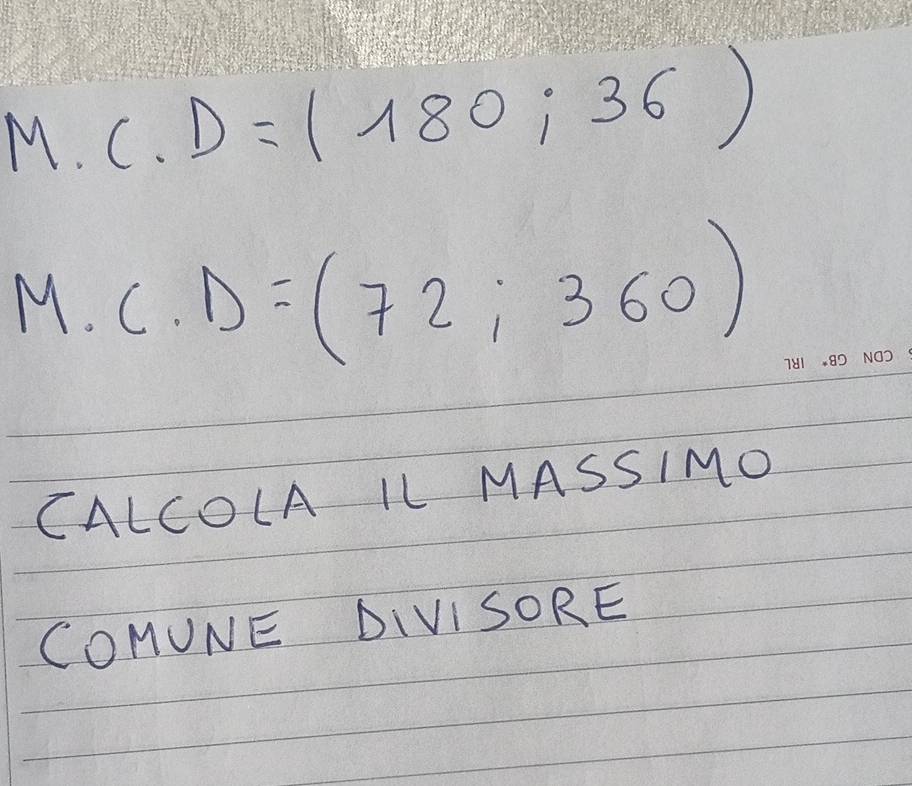 M.C.D=(180; 36)
M.C.D=(72; 360)
CDN GB* IRL
CALCOLA IL MASSIMO
COMUNE DIVISORE